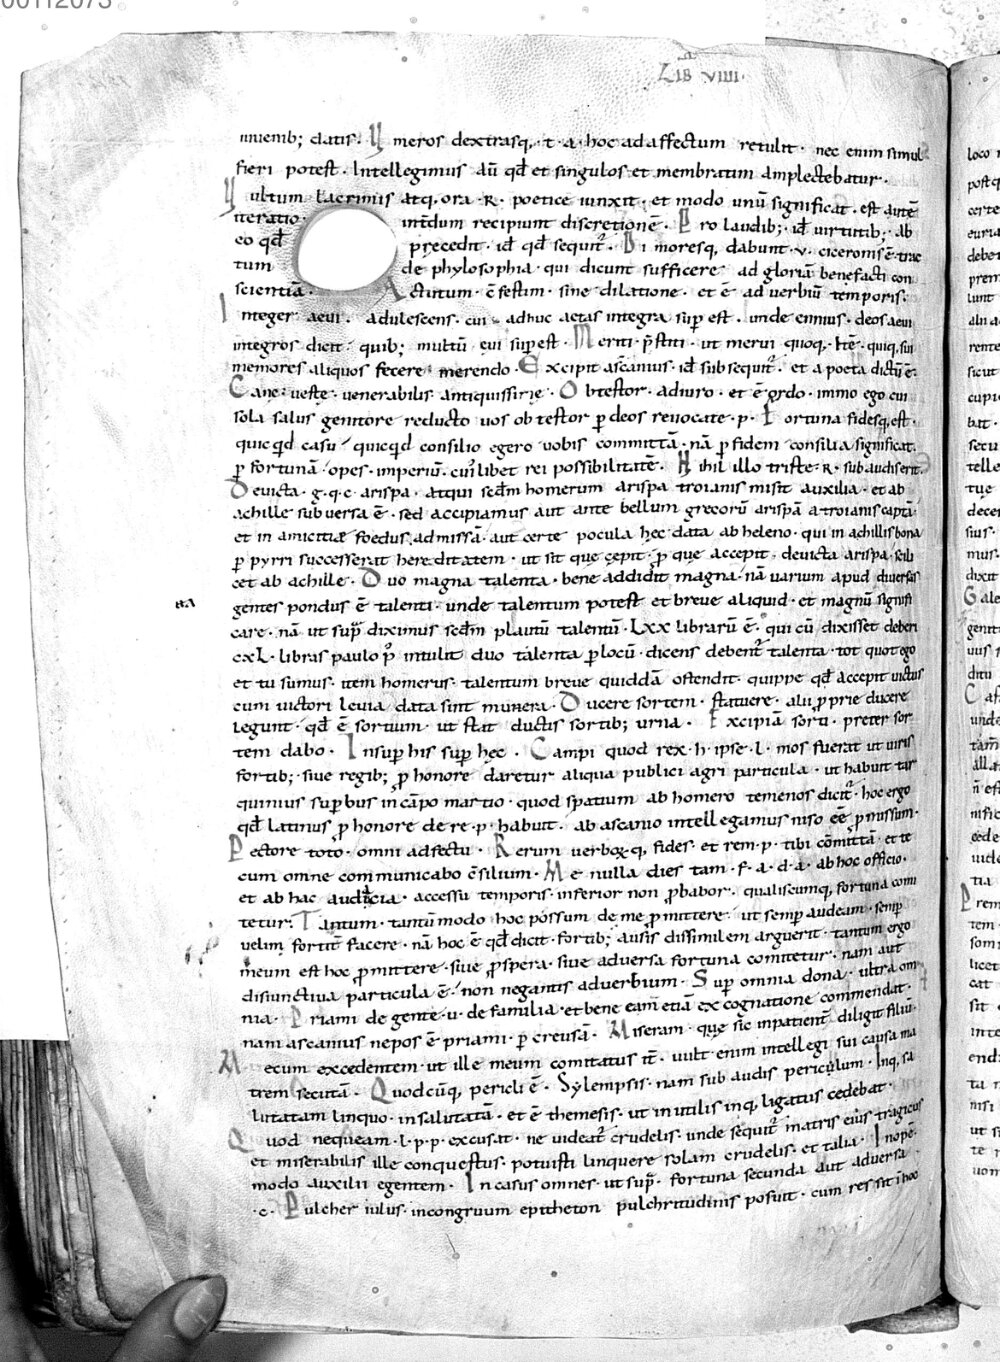 00112073
LIB VIIII
iuuenib; datis. Vmeros dextrasq, t. a. hoc ad affectum retulit. nec enim simul
fieri potest. Intellegimus aū qđ et singulos et membratim amplectebatur.
Vultum lacrimis atq, ora. R. poetice uinxit. et modo unū significat. est autē
iteratio intdum recipiunt discretionē. Pro laudib; id uirtutib; ab
eo qđ precedit. id qđ sequitr. Di moresq, dabunt. v. ciceronis ē trac
tum de phylosophia. qui dicunt sufficere ad gloriā benefacti con
scientiā. Actutum. ē festim. sine dilatione. et ē ad verbiū temporis.
Integer aeui. adulescens. cui adhuc aetas integra sup est. unde ennius. deos aeui
integros dicit. quib; multū eui sup est. Meriti. p̄stiti. ut merui quoq,. t̄e. quiq, sui
memores aliquos fecere merendo. Excipit ascanius. id subsequitr. et a poeta dictū ē.
Cane ueste. uenerabilis antiquissime. Obtestor. adiuro. et ē ordo. immo ego cui
sola salus genitore reducto uos obtestor p deos reuocate. p. Fortuna fidesq, est.
quicqd casu quicqd consilio egero uobis committā. nā p fidem consilia significat.
p fortunā opes. imperiū. cuiuslibet rei possibilitatē. Nihil illo triste. R. subaudis erit.
Deuicta. g. q. c. arispa. atqui scdm homerum arispa troianis misit auxilia. et ab
achille subuersa ē. sed accipiamus aut ante bellum grecorū arispā a troianis captā
et in amicitiæ foedus admissā. aut certe pocula hec data ab heleno. qui in achillis bona
p pyrri successerat hereditatem. ut sit que cepit. p que accepit. deuicta arispa. scili
cet ab achille. Duo magna talenta. bene addidit magna. nā uarium apud diuersas
gentes pondus ē talenti. unde talentum potest et breue aliquid. et magnū signifi
care. nā ut sup diximus scdm plautū talentū. Lxx librarū ē. qui cū dixisset deberi
cxL. libras paulo p intulit duo talenta p locū. dicens debentr talenta. tot quot ego
et tu sumus. item homerus. talentum breue quiddā ostendit. quippe qđ accepit uictus
cum uictori leuia data sint munera. Ducere sortem. statuere. alii p prie ducere
legunt. qđ ē sortium. ut stat ductis sortib; urna. Excipiā sorti. preter sor
tem dabo. Insup his sup hec. Campi quod rex. h. ipse. l. mos fuerat ut uiris
fortib;. siue regib; p honore daretur aliqua publici agri particula. ut habuit tar
quinius supbus in cāpo martio. quod spatium ab homero temenos dicitr. hoc ergo
qđ latinus p honore de re. p. habuit. ab ascanio intellegamus niso ēē p missum.
Pectore toto. omni adfectu. Rerum uerborq, fides. et rem. p. tibi cōmittā. et te
cum omne communicabo c̄silium. Me nulla dies tam. f. a. d. a. ab hoc officio.
et ab hac audacia. accessu temporis. inferior non pbabor. qualiscumq, fortuna comi
tetur. Tantum. tantū modo hoc possum de me p mittere. ut semp audeam. semp
uelim fortiter facere. nā hoc ē qđ dicit. fortib; ausis dissimilem arguerit. tantum ergo
meum est hoc p mittere. siue pspera. siue aduersa fortuna comitetur. nam aut
disiunctiua particula ē. non negantis aduerbium. Sup omnia dona. ultra om
nia. Priami de gente. u. de familia. et bene eam etiā ex cognatione commendat.
nam ascanius nepos ē priami. p creusā. Miseram. que sic inpatientr diligit filiū.
Mecum excedentem. ut ille meum comitatus itr. uult enim intellegi sui causa ma
trem secutā. Quodcūq, pericli ē. Sylempsis. nam sub audis periculum. Inq, sa
lutatam linquo. insalutatā. et ē themesis. ut inutilis inq, ligatus cedebat.
Quod nequeam. l. p. p. excusat. ne uideatr crudelis. unde sequitr matris eius tragicus
et miserabilis ille conquestus. potuisti linquere solam crudelis. et talia. Inopē.
modo auxilii egentem. In casus omnes. ut sup. fortuna secunda aut aduersa.
.c. Pulcher iulus. incongruum epitheton pulchritudinis posuit. cum res sit i hoc